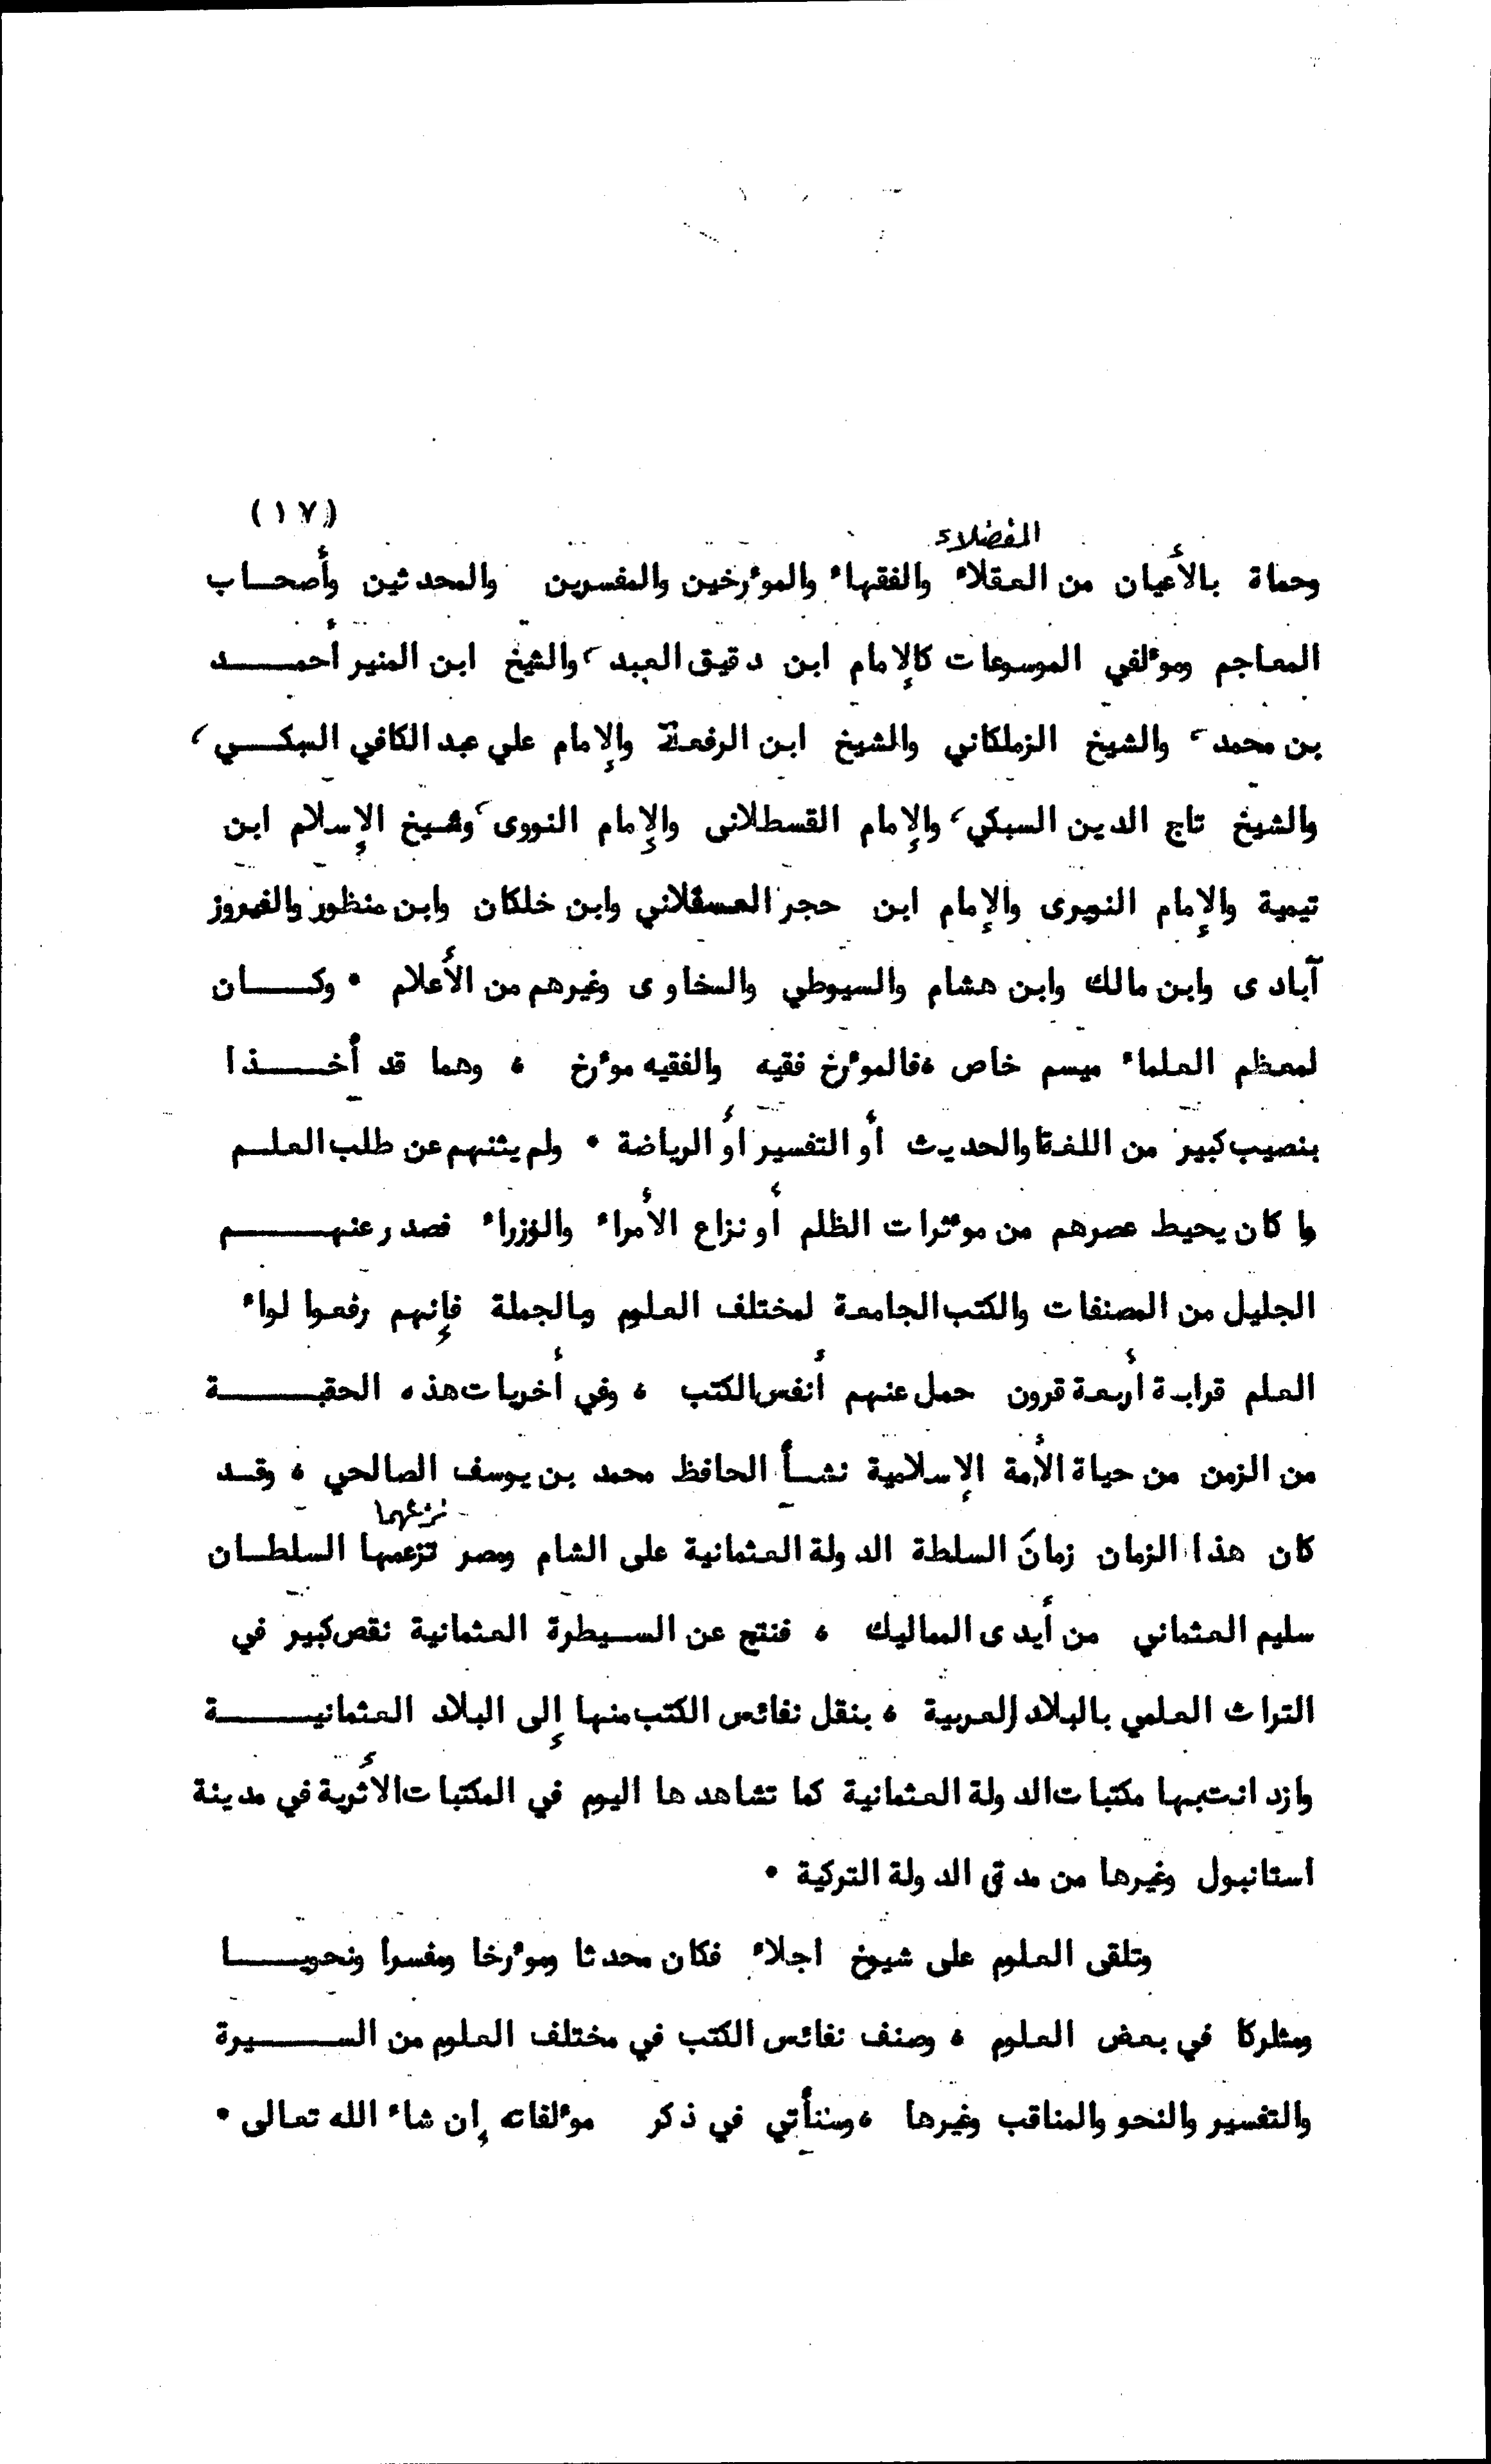 (١٧)
الفضلاء
وحماة بالأعيان من العقلاء والفقهاء والمؤرخين والمفسرين والمحدثين وأصحاب
المعاجم ومؤلفي الموسوعات كالإمام ابن دقيق العيد، والشيخ ابن المنير أحمد
بن محمد، والشيخ الزملكاني والشيخ ابن الرفعة والإمام علي عبد الكافي السبكي،
والشيخ تاج الدين السبكي، والإمام القسطلانى والإمام النووى، وشيخ الإسلام ابن
تيمية والإمام النويرى والإمام ابن حجر العسقلاني وابن خلكان وابن منظور والفيروز
آبادى وابن مالك وابن هشام والسيوطي والسخاوى وغيرهم من الأعلام . وكان
لمعظم العلماء ميسم خاص ، فالمؤرخ فقيه والفقيه مؤرخ ، وهما قد أخذا
بنصيب كبير من اللغة والحديث أو التفسير أو الرياضة . ولم يثنهم عن طلب العلم
ما كان يحيط عصرهم من مؤثرات الظلم أو نزاع الأمراء والوزراء فصدر عنهم
الجليل من المصنفات والكتب الجامعة لمختلف العلوم وبالجملة فإنهم رفعوا لواء
العلم قرابة أربعة قرون حمل عنهم أنفس الكتب ، وفي أخريات هذه الحقبة
من الزمن من حياة الأمة الإسلامية نشأ الحافظ محمد بن يوسف الصالحي ، وقد
نزعهما
كان هذا الزمان زمانَ السلطة الدولة العثمانية على الشام ومصر تزعمها السلطان
سليم العثماني من أيدى المماليك ، فنتج عن السيطرة العثمانية نقص كبير في
التراث العلمي بالبلاد العربية ، بنقل نفائس الكتب منها إلى البلاد العثمانية
وازدانت بها مكتبات الدولة العثمانية كما تشاهدها اليوم في المكتبات الأثرية في مدينة
استانبول وغيرها من مدن الدولة التركية .
وتلقى العلوم على شيوخ اجلاء فكان محدثا ومؤرخا ومفسرا ونحويا
ومشاركا في بعض العلوم ، وصنف نفائس الكتب في مختلف العلوم من السيرة
والتفسير والنحو والمناقب وغيرها ، وسنأتي في ذكر مؤلفاته إن شاء الله تعالى .